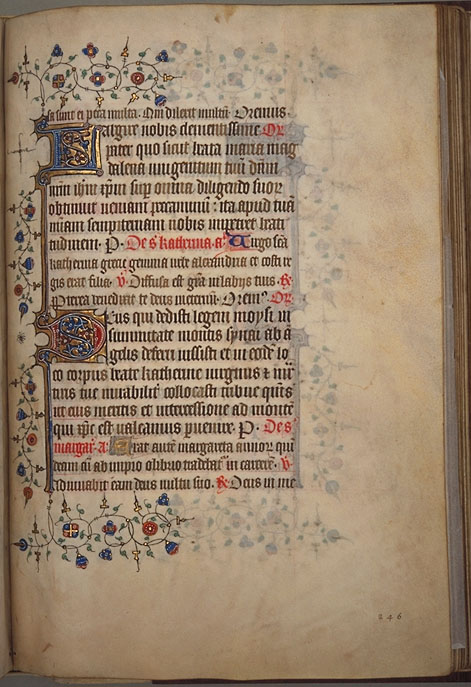 sa sunt ei pcca multa. Qm dilexit multum Oremus.
Largire nobis clementissime Or
pater quo sicut beata maria mag
dalena unigenitum tuum dnm
nrm ihm xpm sup omnia diligendo suor
obtinuit veniam peccaminum: ita apud tuam
miam sempiternam nobis impetret beati
tudinem. P. De s katherina. a Virgo sca
katherina grecie gemma urbe alexandria et costi re
gis erat filia. v Diffusa est gra in labiis tuis. R
Pterea benedixit te deus in eternum. Orem. Or
Deus qui dedisti legem moysi in
summitate montis synai et in eode lo
co corpus beate katherine virginis et mr
tiris tue mirabilit collocasti tribue qs
ut eius meritis et intercessione ad monte
qui xpc est valeamus puenire. P. De s
margar. a. Erat aute margareta annor qui
decim cu ab impio olibrio tradebat in carcere. v
Adiuvabit eam deus vultu suo. R Deus in me
246